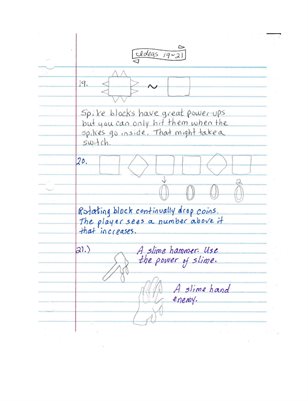 Ideas 19-21
19.
~
Spike blocks have great power-ups
but you can only hit them when the
spikes go inside. That might take a
switch.
20.
Rotating block continually drop coins.
The player sees a number above it
that increases.
21.)
A slime hammer. Use
the power of slime.
A slime hand
enemy.